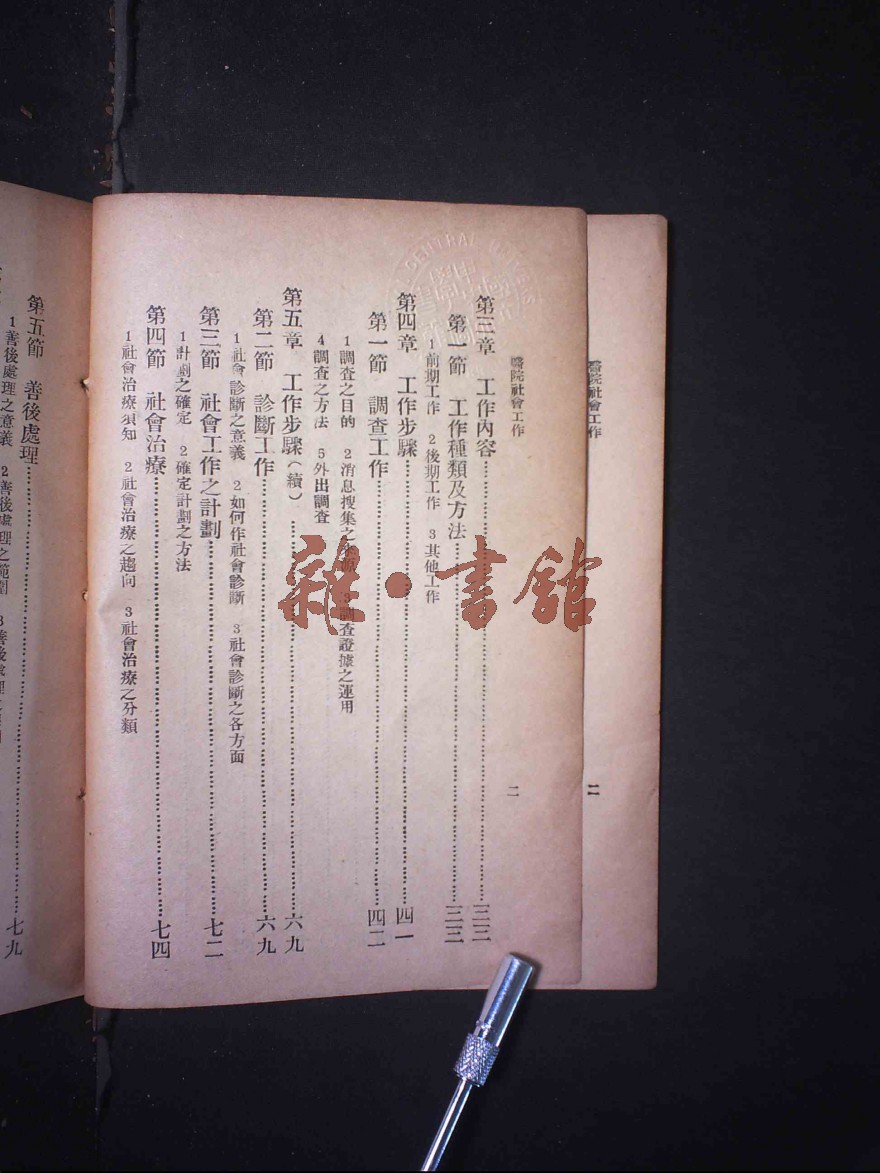 醫院社會工作
二
醫院社會工作
二
第三章 工作內容……三三
第一節 工作種類及方法……三三
1前期工作 2後期工作 3其他工作
第四章 工作步驟……四一
第一節 調查工作……四二
1調查之目的 2消息搜集之 3調查證據之運用
4調查之方法 5外出調查
第五章 工作步驟(續)……六九
第二節 診斷工作……六九
1社會診斷之意義 2如何作社會診斷 3社會診斷之各方面
第三節 社會工作之計劃……七二
1計劃之確定 2確定計劃之方法
第四節 社會治療……七四
1社會治療須知 2社會治療之趨向 3社會治療之分類
第五節 善後處理……七九
1善後處理之意義 2善後處理之範圍 3善後處理
雜·書館
CENTRAL